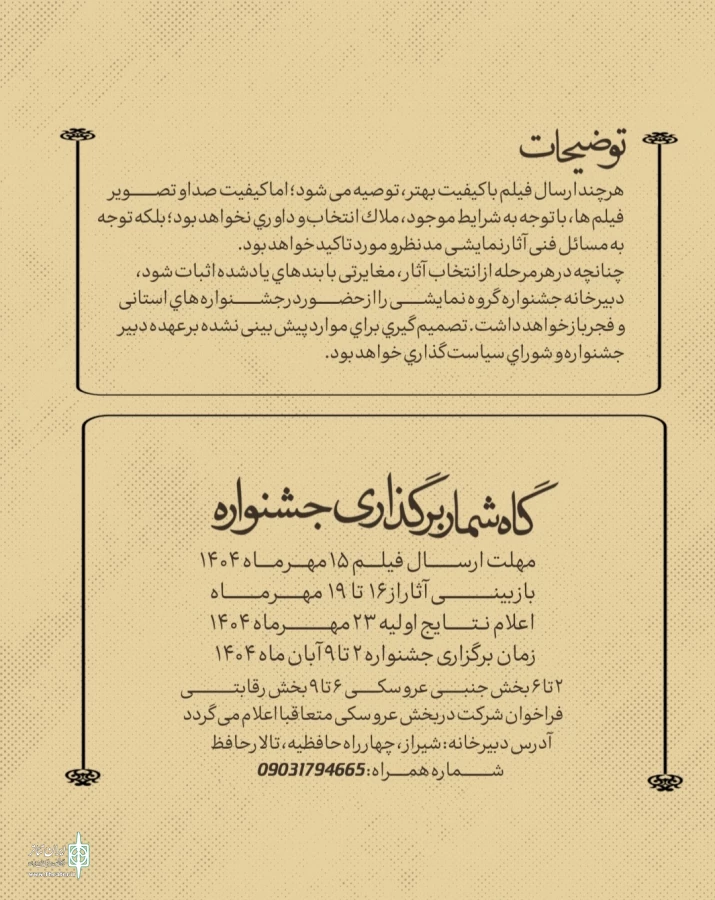 توضیحات
هرچند ارسال فیلم با کیفیت بهتر، توصیه می شود؛ اما کیفیت صدا و تصـــویر
فیلم ها، با توجه به شرایط موجود، ملاك انتخاب و داوري نخواهد بود؛ بلکه توجه
به مسائل فنی آثار نمایشی مدنظر و مورد تاکید خواهد بود.
چنانچه در هر مرحله از انتخاب آثار، مغایرتی با بندهاي یاد شده اثبات شود،
دبیرخانه جشنواره گروه نمایشـــی را از حضـــور در جشـــنواره هاي استانی
و فجر باز خواهد داشت. تصمیم گیري براي موارد پیش بینی نشده بر عهده دبیر
جشنواره و شوراي سیاست گذاري خواهد بود.
گاه شمار برگذاری جشنواره
مهلت ارســـال فیلـــم ۱۵ مهـــر مـــاه ۱۴۰۴
بازبینـــی آثار از ۱۶ تا ۱۹ مهـــر مـــاه
اعلام نـتـــایج اولیه ۲۳ مهـــر ماه ۱۴۰۴
زمان برگزاری جشنواره ۲ تا ۹ آبان ماه ۱۴۰۴
۲ تا ۶ بخش جنبـــی عروسکـــی ۶ تا ۹ بخش رقابتـــی
فراخوان شرکت در بخش عروسکی متعاقبا اعلام می گردد
آدرس دبیرخانه: شیراز، چهارراه حافظیه، تالار حافظ
شـــماره همـــراه: 09031794665